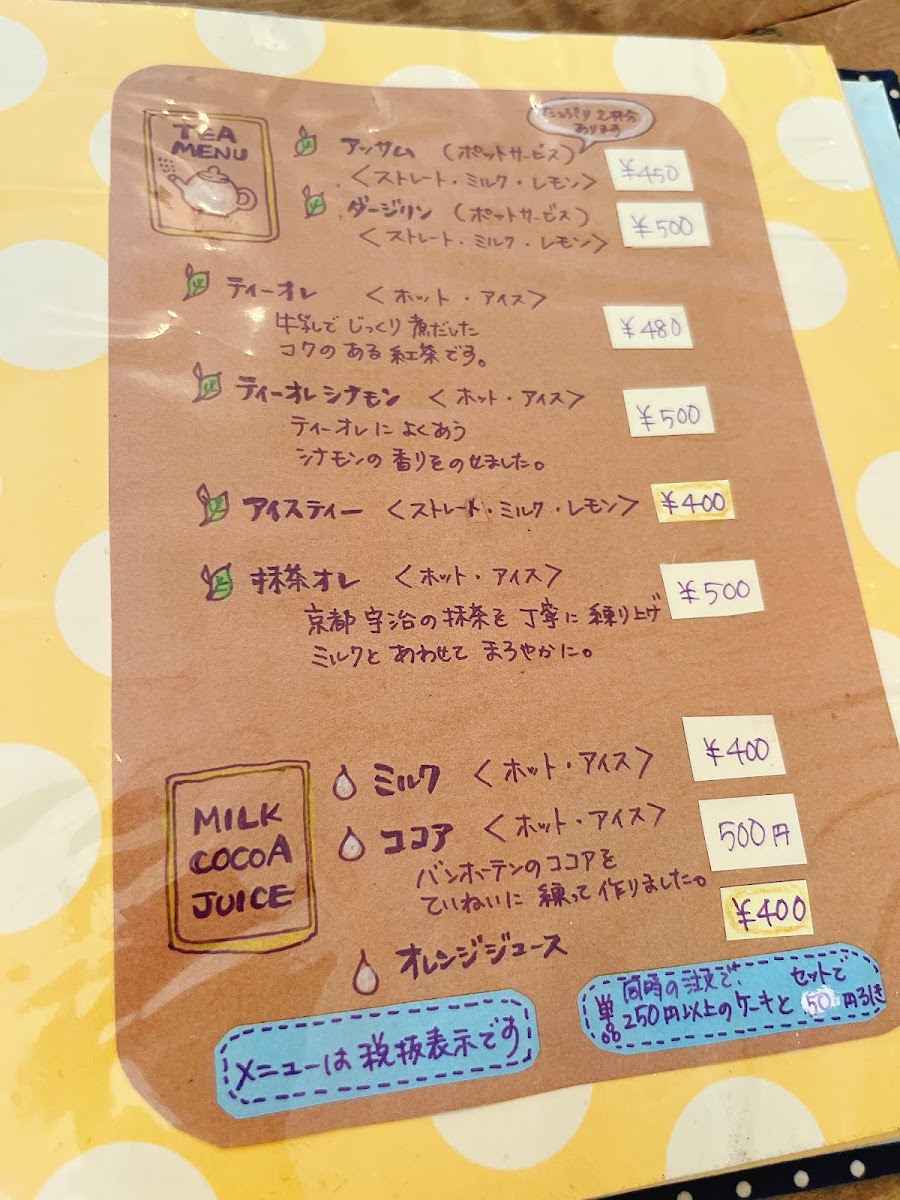 TEA
MENU
たっぷり2杯分
あります
アッサム (ポットサービス)
<ストレート・ミルク・レモン>
¥450
ダージリン (ポットサービス)
<ストレート・ミルク・レモン>
¥500
ティーオレ <ホット・アイス>
牛乳でじっくり煮だした
コクのある紅茶です。
¥480
ティーオレシナモン <ホット・アイス>
ティーオレによくあう
シナモンの香りをのせました。
¥500
アイスティー <ストレート・ミルク・レモン> ¥400
抹茶オレ <ホット・アイス>
京都宇治の抹茶を丁寧に練り上げ
ミルクとあわせてまろやかに。
¥500
MILK
COCOA
JUICE
ミルク <ホット・アイス> ¥400
ココア <ホット・アイス> 500円
バンホーテンのココアを
ていねいに練って作りました。
オレンジジュース ¥400
メニューは税抜表示です
同時の注文で、セットで
250円以上のケーキと50円引き